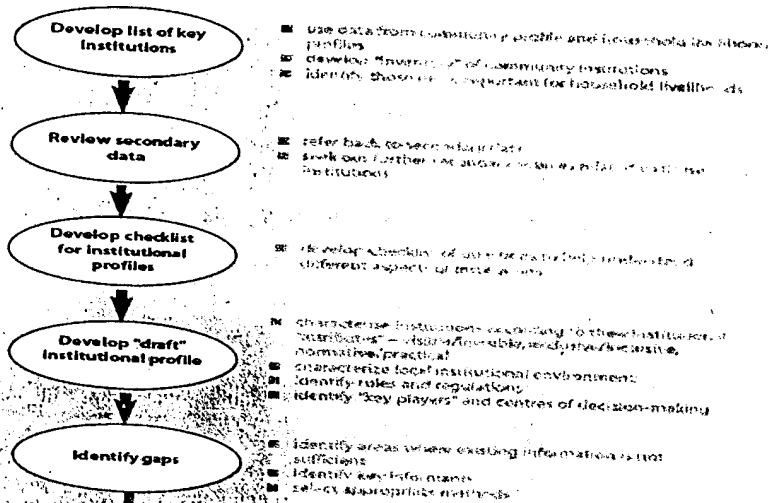 Develop list of key
institutions
use data from community profile and household livelihood
profiles
develop "inventory" of community institutions
identify those important for household livelihoods
Review secondary
data
refer back to secondary data
seek out further secondary
institutions
Develop checklist
for institutional
profiles
develop checklist of
different aspects of institutions
Develop "draft"
institutional profile
characterise institutions according to their institutional
"attributes" – visible/invisible,
normative/practical
characterize local institutional environment
identify rules and regulations
identify "key players" and centres of decision-making
Identify gaps
identify areas where existing information is not
sufficient
identify key informants
select appropriate methods